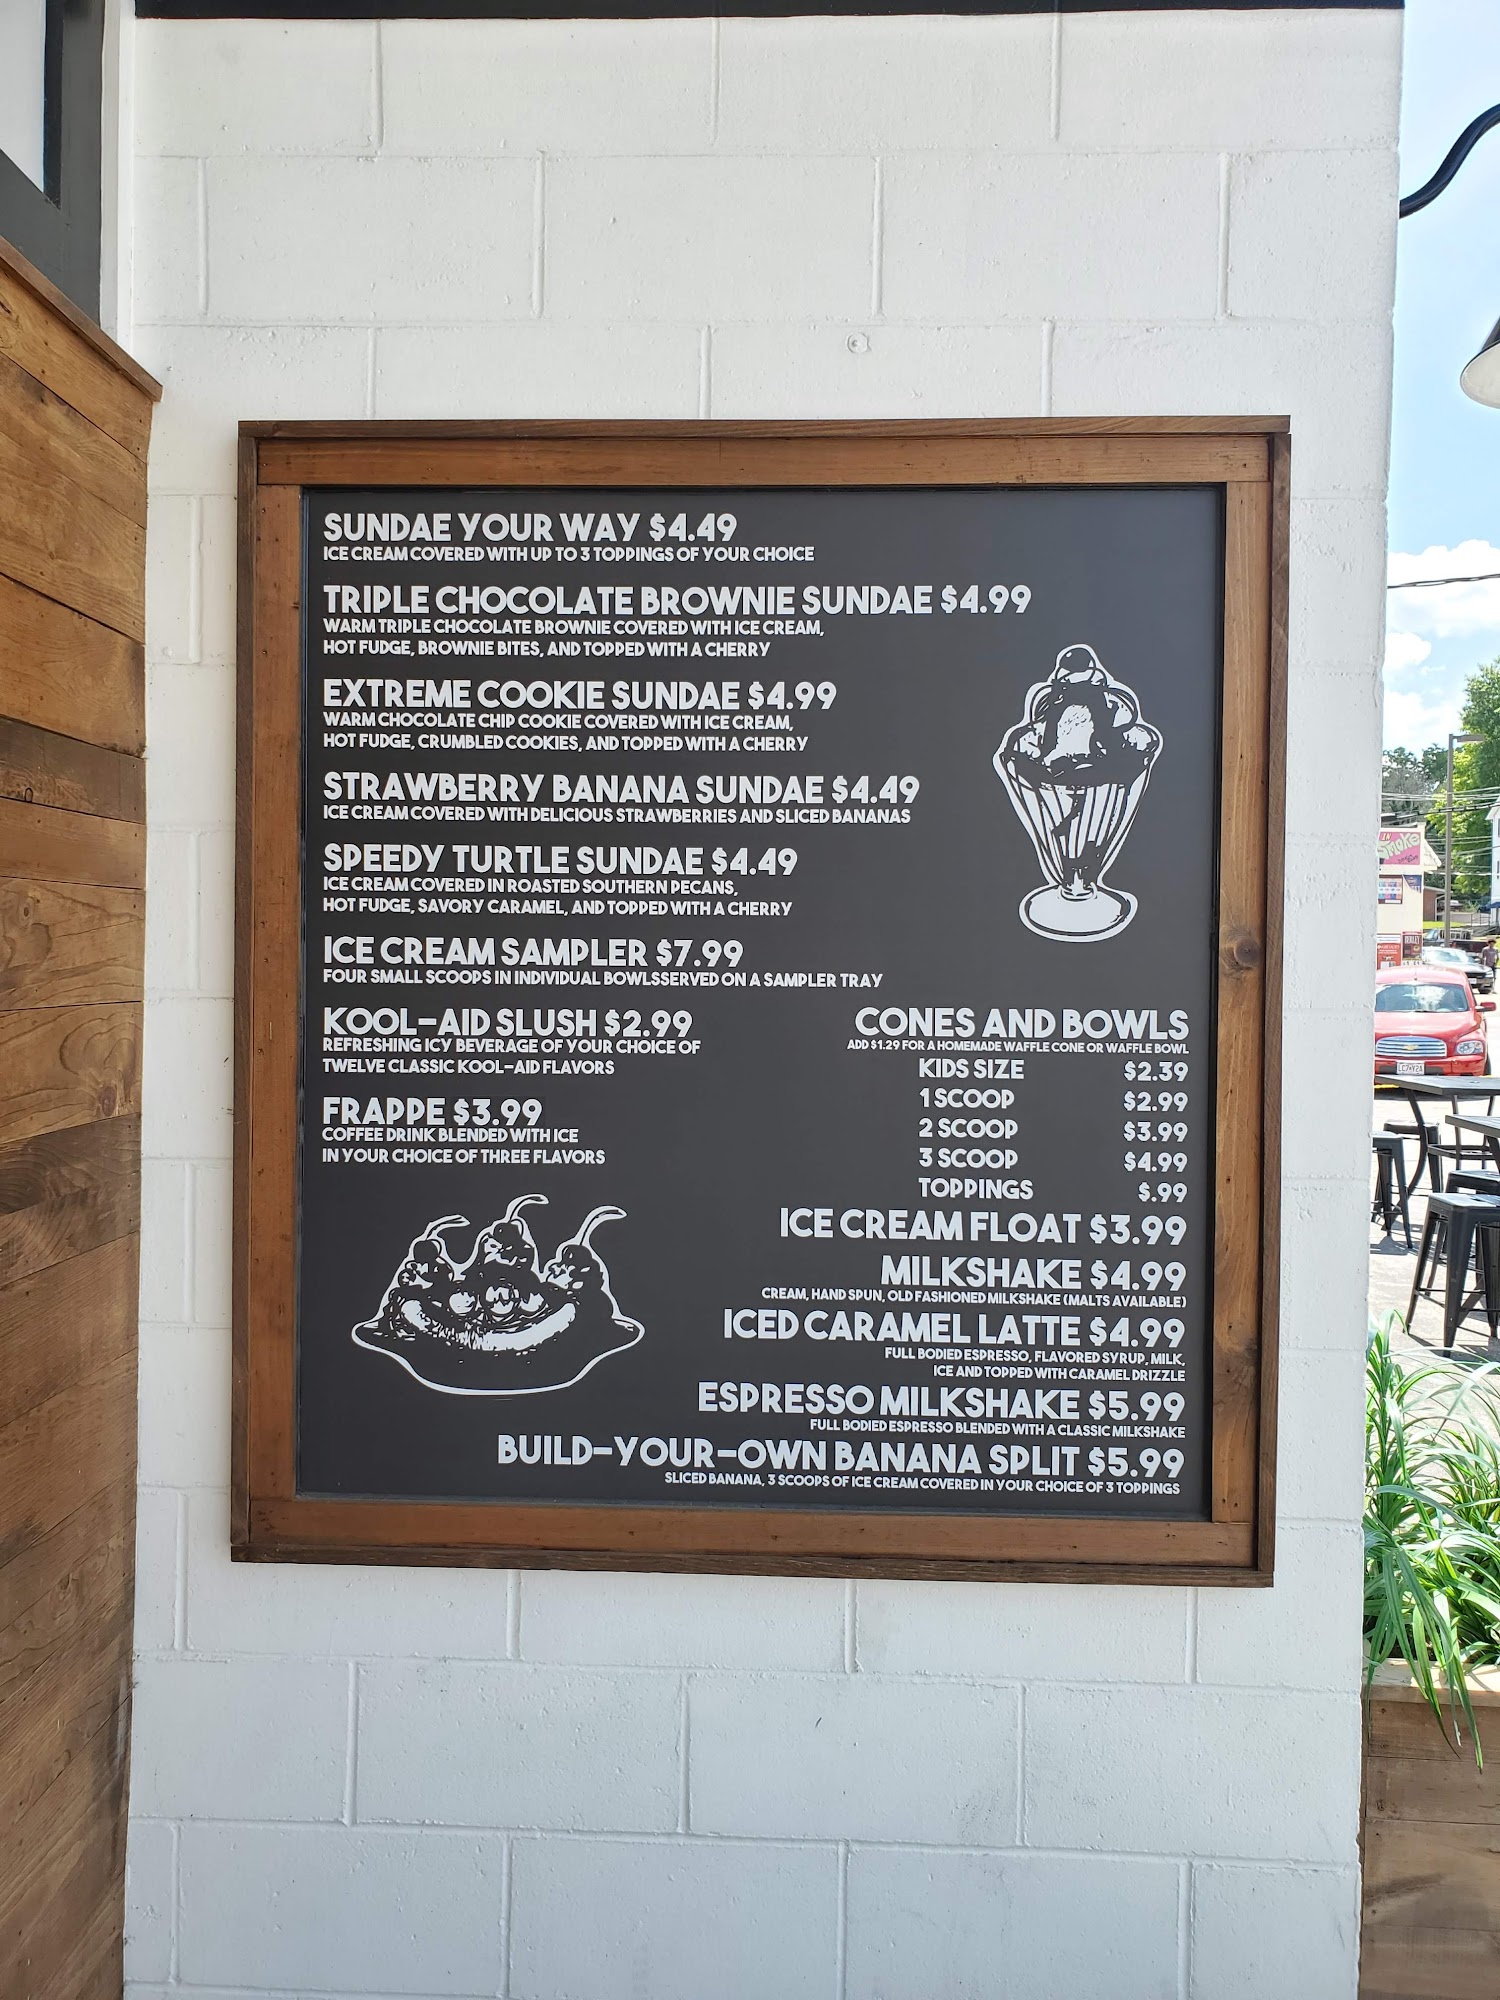 SUNDAE YOUR WAY $4.49
ICE CREAM COVERED WITH UP TO 3 TOPPINGS OF YOUR CHOICE
TRIPLE CHOCOLATE BROWNIE SUNDAE $4.99
WARM TRIPLE CHOCOLATE BROWNIE COVERED WITH ICE CREAM,
HOT FUDGE, BROWNIE BITES, AND TOPPED WITH A CHERRY
EXTREME COOKIE SUNDAE $4.99
WARM CHOCOLATE CHIP COOKIE COVERED WITH ICE CREAM,
HOT FUDGE, CRUMBLED COOKIES, AND TOPPED WITH A CHERRY
STRAWBERRY BANANA SUNDAE $4.49
ICE CREAM COVERED WITH DELICIOUS STRAWBERRIES AND SLICED BANANAS
SPEEDY TURTLE SUNDAE $4.49
ICE CREAM COVERED IN ROASTED SOUTHERN PECANS,
HOT FUDGE, SAVORY CARAMEL, AND TOPPED WITH A CHERRY
ICE CREAM SAMPLER $7.99
FOUR SMALL SCOOPS IN INDIVIDUAL BOWLSSERVED ON A SAMPLER TRAY
KOOL-AID SLUSH $2.99
REFRESHING ICY BEVERAGE OF YOUR CHOICE OF
TWELVE CLASSIC KOOL-AID FLAVORS
FRAPPE $3.99
COFFEE DRINK BLENDED WITH ICE
IN YOUR CHOICE OF THREE FLAVORS
CONES AND BOWLS
ADD $1.29 FOR A HOMEMADE WAFFLE CONE OR WAFFLE BOWL
KIDS SIZE $2.39
1 SCOOP $2.99
2 SCOOP $3.99
3 SCOOP $4.99
TOPPINGS $.99
ICE CREAM FLOAT $3.99
MILKSHAKE $4.99
CREAM, HAND SPUN, OLD FASHIONED MILKSHAKE (MALTS AVAILABLE)
ICED CARAMEL LATTE $4.99
FULL BODIED ESPRESSO, FLAVORED SYRUP, MILK,
ICE AND TOPPED WITH CARAMEL DRIZZLE
ESPRESSO MILKSHAKE $5.99
FULL BODIED ESPRESSO BLENDED WITH A CLASSIC MILKSHAKE
BUILD-YOUR-OWN BANANA SPLIT $5.99
SLICED BANANA, 3 SCOOPS OF ICE CREAM COVERED IN YOUR CHOICE OF 3 TOPPINGS
SMOKE